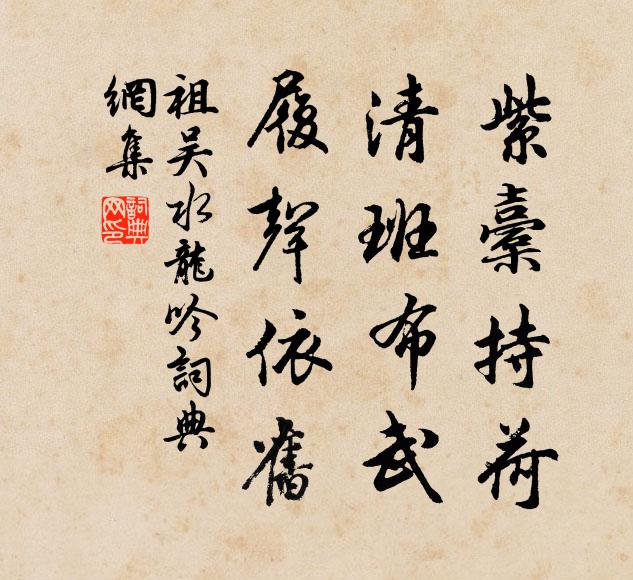 紫橐持荷
清班布武
履聲依舊
祖吳水龍吟詞典
網集
詞典
网印